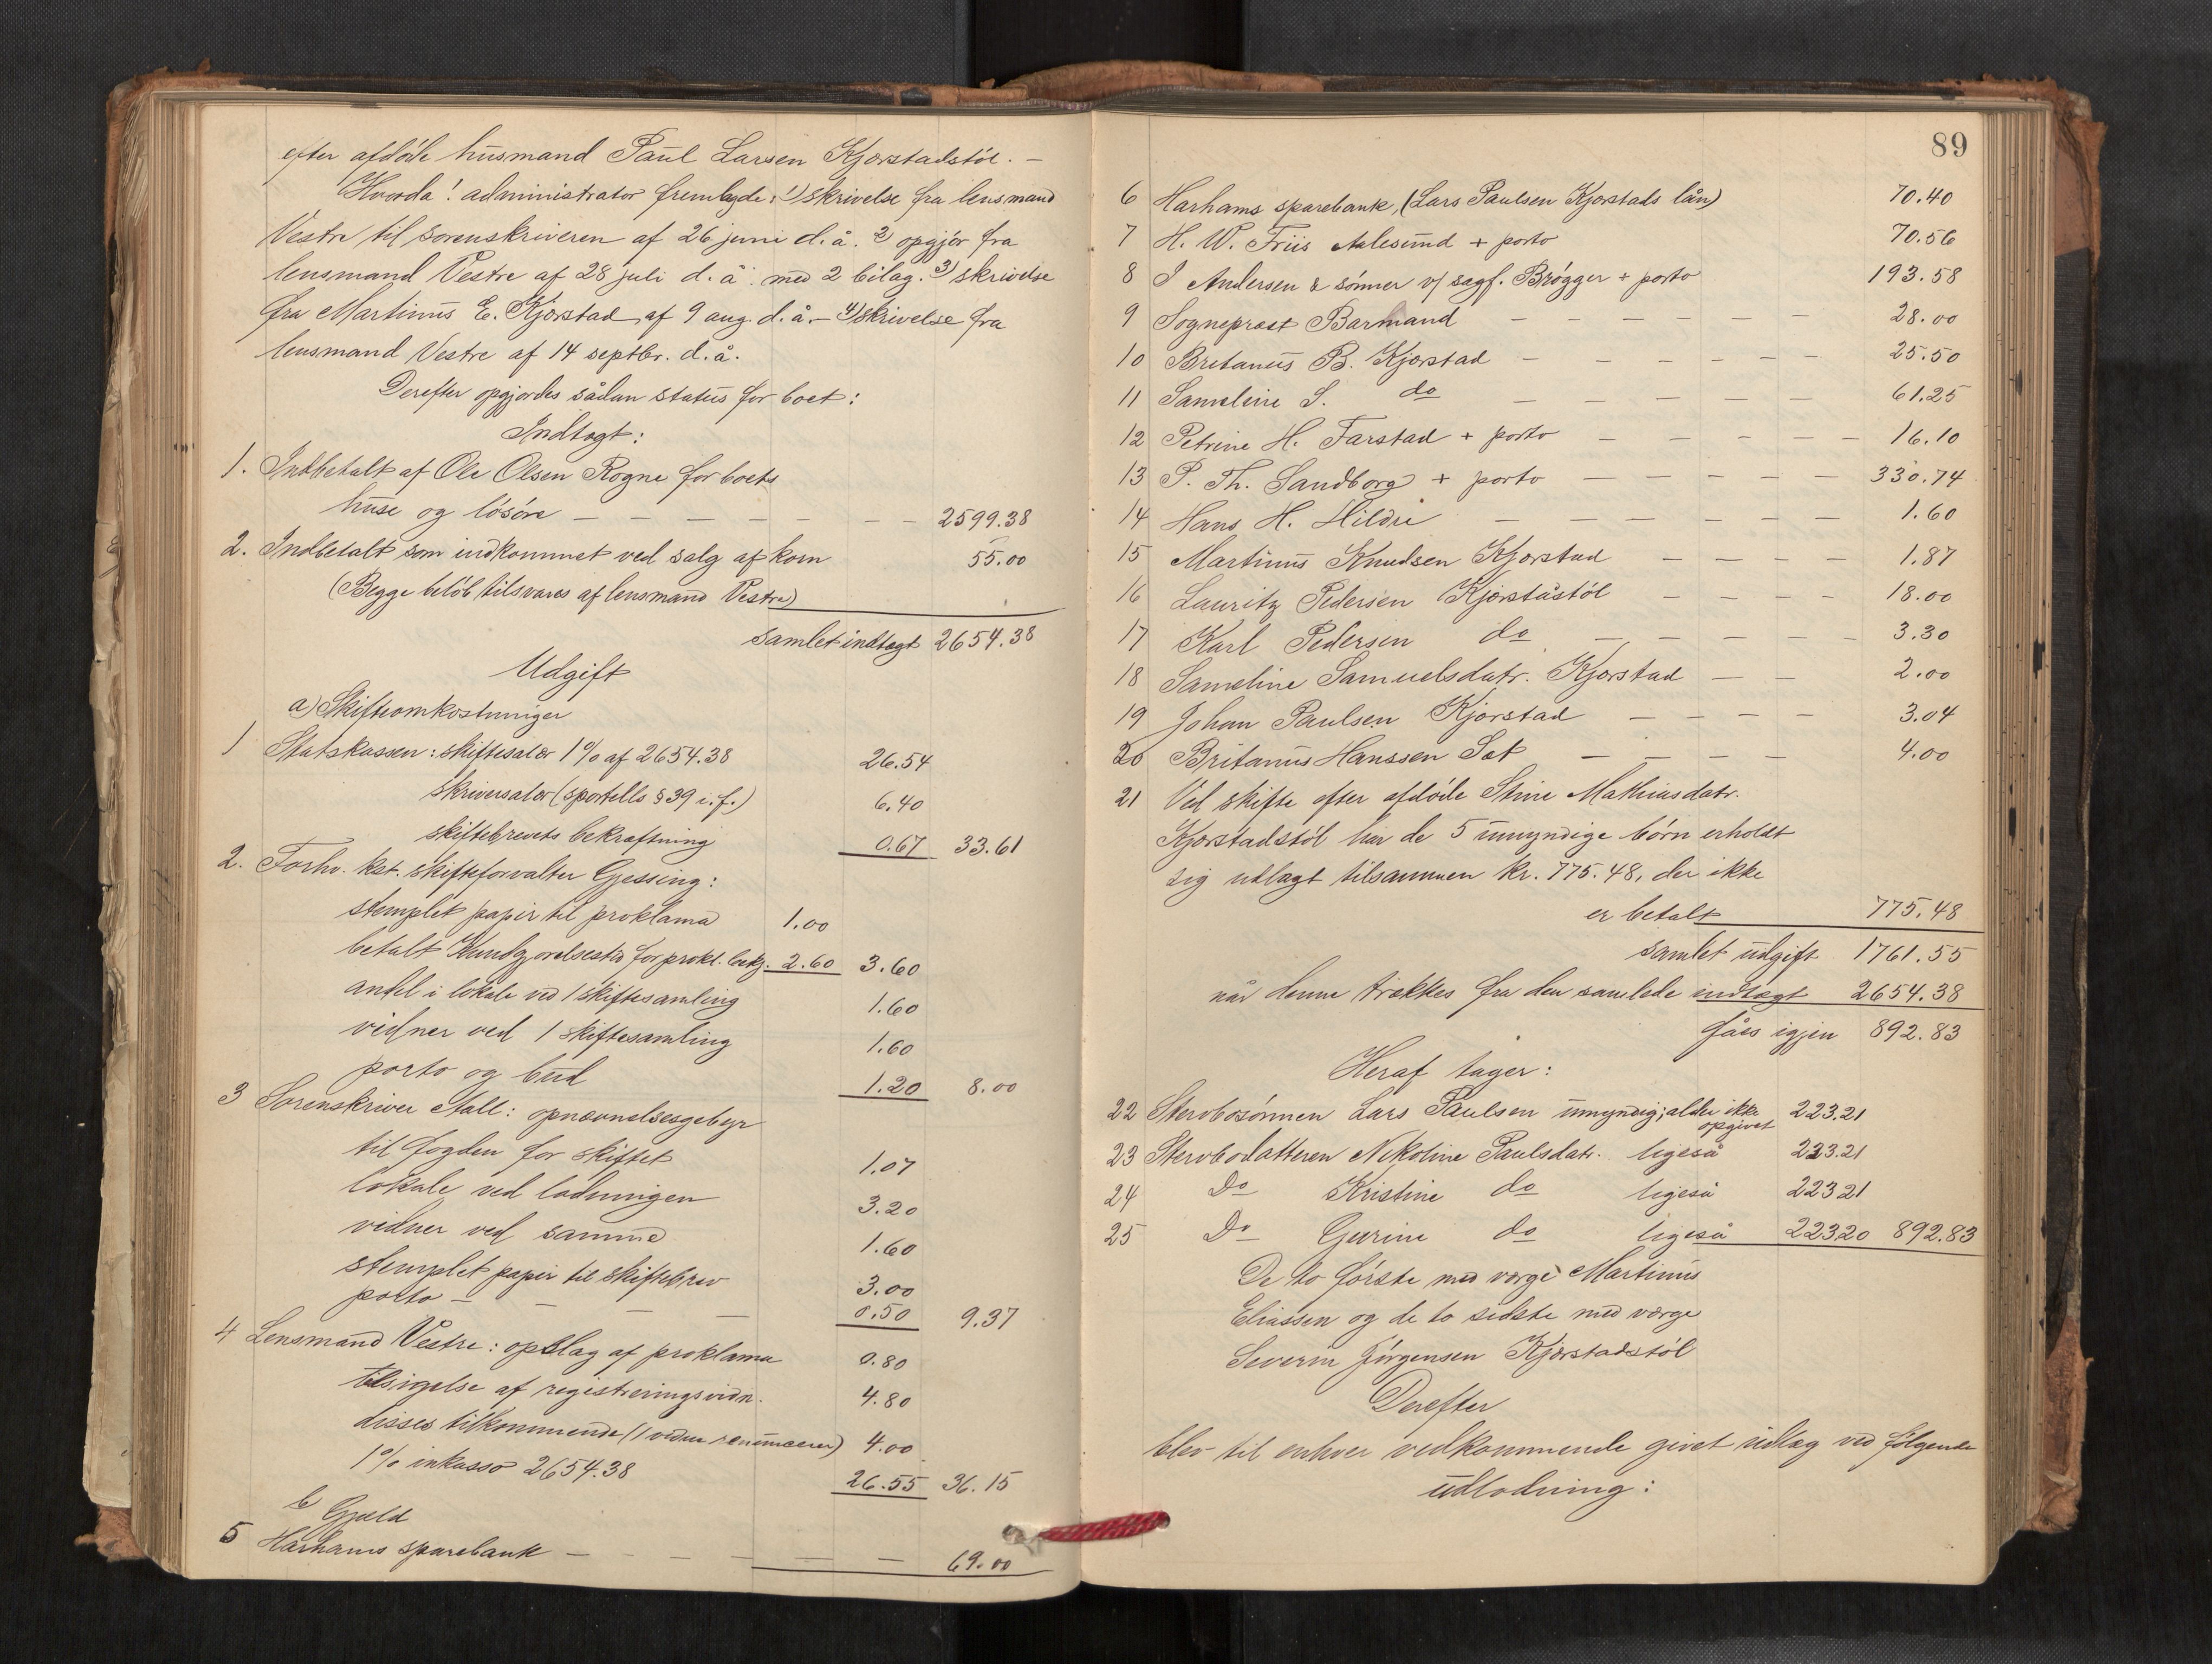 efter afdöde husmand Paul Larsen Kjørstadstöl. –
Hvorda! administrator fremlagde: 1) skrivelse fra lensmand
Vestre til sorenskriveren af 26 juni d. å. 2) opgjör fra
lensmand Vestre af 28 juli d. å. med 2 bilag. 3) skrivelse
fra Martinus E. Kjørstad af 9 aug. d. å. – 4) skrivelse fra
lensmand Vestre af 14 septbr. d. å.
Derefter opgjordes sådan status for boet:
Indtægt:
1. Indbetalt af Ole Olsen Rogne for boets
huse og lösöre – – – – – – – 2599.38
2. Indbetalt som indkommet ved salg af korn 55.00
(Begge belöb tilsvares af lensmand Vestre)
samlet indtægt 2654.38
Udgift
a) Skifteomkostninger
1 Statskassen: skiftesalær 1% af 2654.38 26.54
skriversalær (sportells § 39 i. f.) 6.40
skiftebrevets bekræftning 0.67 33.61
2. Forhv. kst. skifteforvalter Gjessing:
stemplet papir til proklama 1.00
betalt Kundgjørelsestid. for prokl. bekj. 2.60 3.60
andel i lokale ved 1 skiftesamling 1.60
vidner ved 1 skiftesamling 1.60
porto og bud 1.20 8.00
3 Sorenskriver Aall: opnævnelsesgebyr
til fogden for skiftet 1.07
lokale ved lodningen 3.20
vidner ved samme 1.60
stemplet papir til skiftebrev 3.00
porto – – – – 0.50 9.37
4 Lensmand Vestre: opslag af proklama 0.80
tilsigelse af registreringsvidn. 4.80
disses tilkommende (1 vidne renuncerer) 4.00
1% inkasso 2654.38 26.55 36.15
b Gjæld
5 Harhams sparebank – – – – – – 69.00
89
6 Harhams sparebank, (Lars Paulsen Kjørstads lån) 70.40
7 H. W. Friis Aalesund + porto 70.56
8 I Andersen & sönner v/ sagf. Brögger + porto 193.58
9 Sogneprest Barmand – – – – – – – 28.00
10 Britanus B. Kjørstad – – – – – – 25.50
11 Sameline S. do – – – – – 61.25
12 Petrine H. Farstad + porto – – – – – – 16.10
13 P. Th. Sandborg + porto – – – – – – 330.74
14 Hans H. Hildre – – – – – – – 1.60
15 Martinus Knudsen Kjørstad – – – – 1.87
16 Lauritz Pedersen Kjørstastöl – – – – 18.00
17 Karl Pedersen do – – – – – – 3.30
18 Sameline Samuelsdatr. Kjørstad – – 2.00
19 Johan Paulsen Kjørstad – – – – 3.04
20 Britanus Hanssen Sæt – – – – 4.00
21 Ved skifte efter afdöde Stine Mathiasdatr.
Kjørstadstöl har de 5 umyndige börn erholdt
sig udlagt tilsammen kr. 775.48, der ikke
er betalt 775.48
samlet udgift 1761.55
når denne trækkes fra den samlede indtægt 2654.38
fåes igjen 892.83
Heraf tager:
22 Stervbosönnen Lars Paulsen umyndig; alder ikke opgivet 223.21
23 Stervbodatteren Nikoline Paulsdatr. ligeså 223.21
24 Do Kristine do ligeså 223 21
25 Do Gurine do ligeså 223 20 892.83
De to förste med værge Martinus
Eliassen og de to sidste med værge
Severin Jörgensen Kjørstadstöl
Derefter
blev til enhver vedkommende givet udlæg ved fölgende
udlodning: